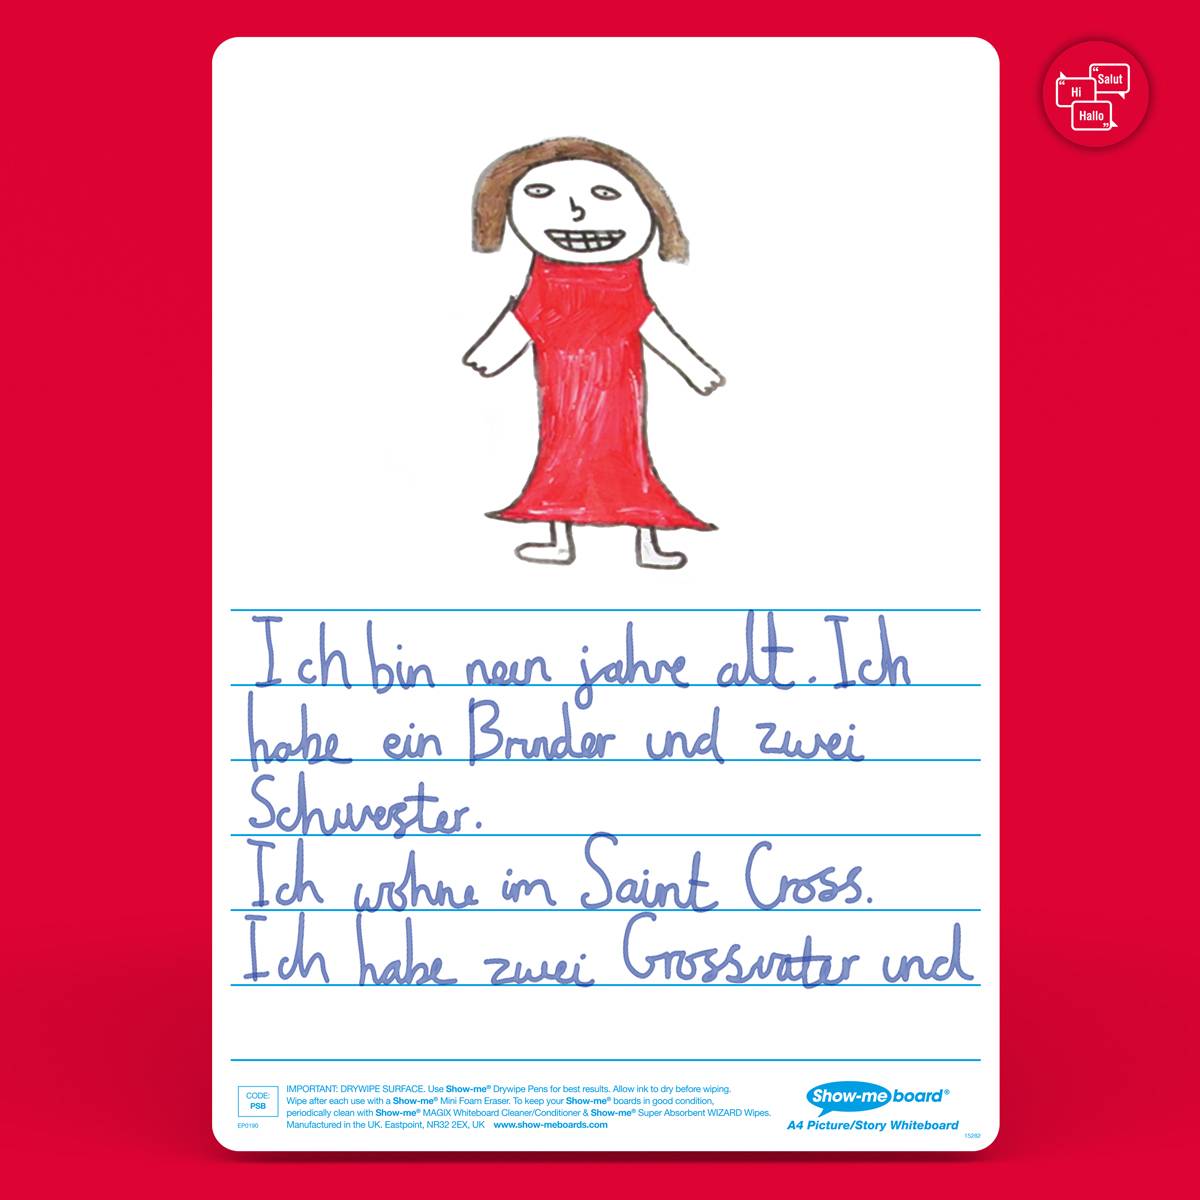 Salut
Hi
Hallo
Ich bin neun jahre alt. Ich
habe ein Bruder und zwei
Schwester.
Ich wohne im Saint Cross.
Ich habe zwei Grossvater und
CODE:
PSB
EP0190
IMPORTANT: DRYWIPE SURFACE. Use Show-me® Drywipe Pens for best results. Allow ink to dry before wiping.
Wipe after each use with a Show-me® Mini Foam Eraser. To keep your Show-me® boards in good condition,
periodically clean with Show-me® MAGIX Whiteboard Cleaner/Conditioner & Show-me® Super Absorbent WIZARD Wipes.
Manufactured in the UK. Eastpoint, NR32 2EX, UK www.show-meboards.com
Show-me board®
A4 Picture/Story Whiteboard
15282